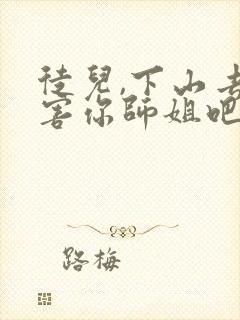 徒兒,下山去
害你師姐吧
路梅